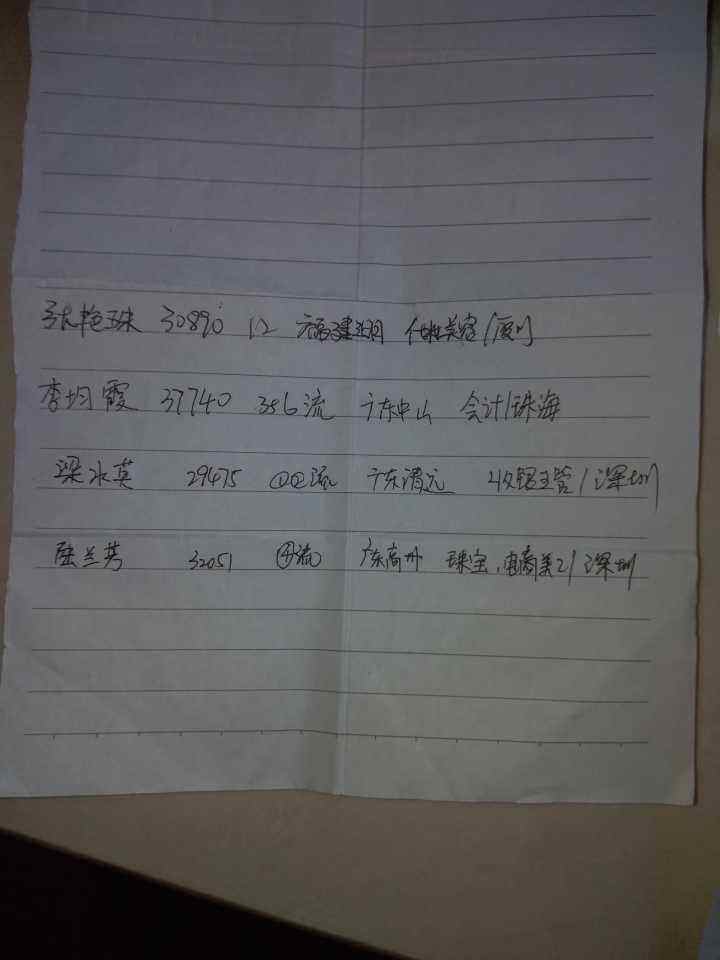 张艳珠 30890 12 福建 美容/厦门
李均霞 37740 356流 广东中山 会计/珠海
梁水英 29475 ①②流 广东清远 收银主管/深圳
陆兰芳 32051 ④流 广东高州 珠宝、电商美工/深圳